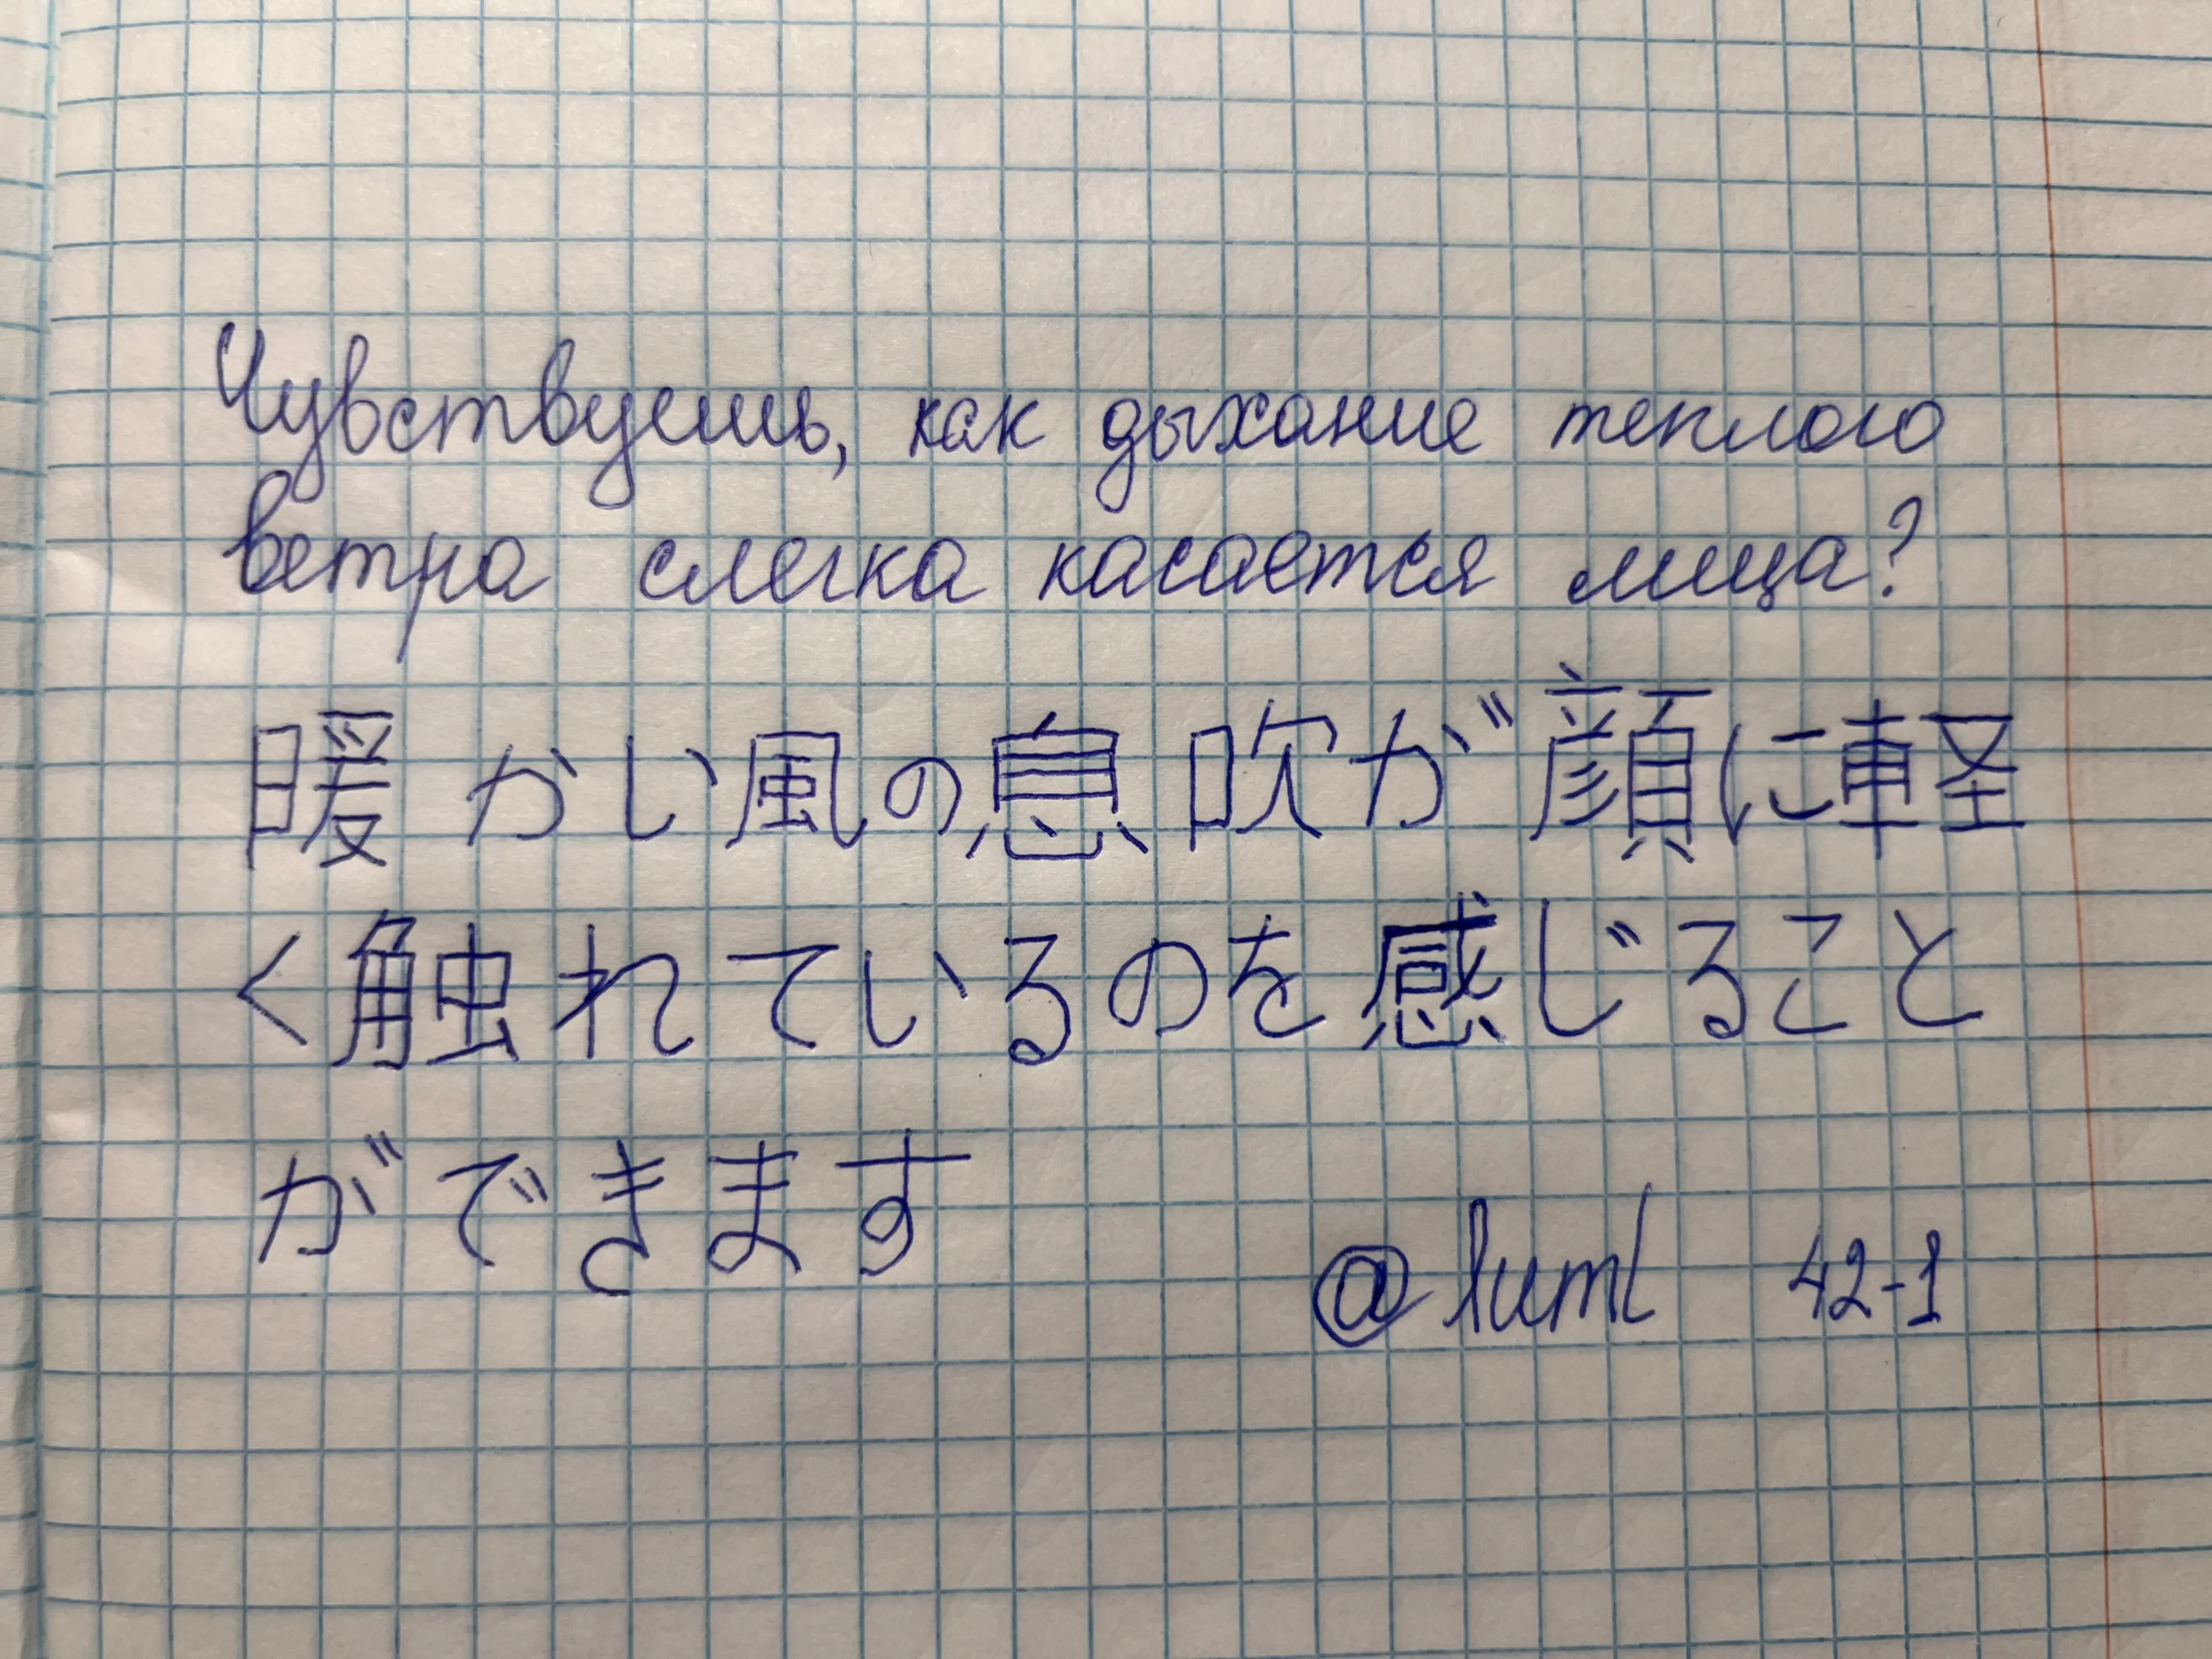 Чувствуешь, как дыхание теплого
ветра слегка касается лица?
暖かい風の息吹が顔に軽
く触れているのを感じること
ができます
@luml 42-1